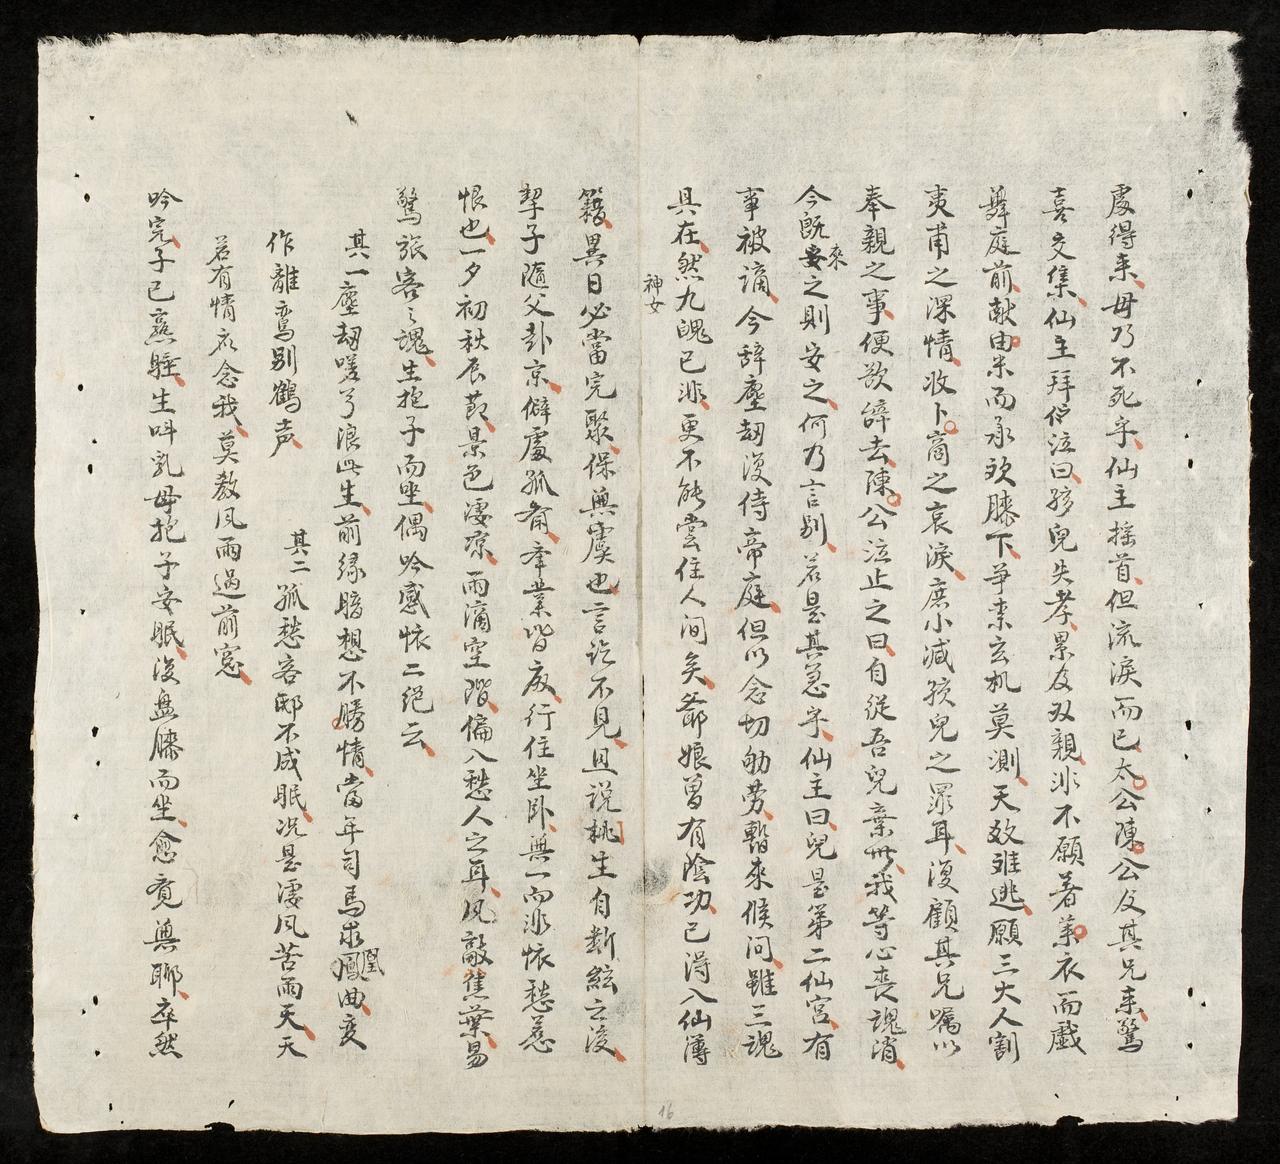 處得来母乃不死乎仙主揺首但流淚而已太公陳公及其兄来驚
喜交集仙主拜伏泣曰孩兒失孝累及双親非不願著莱衣而戲
舞庭前献由米而承欢膝下争柰玄机莫測天数难逃願三大人割
夷甫之深情收卜商之哀淚庶小减孩兒之罪耳復顧其兄嘱以
奉親之事便欲辞去陳公泣止之曰自從吾兒棄世我等心喪魂消
今既来之則安之何乃言别若是其急乎仙主曰兒是第二仙宫有
事被謫今辞塵刼復侍帝庭但以念切劬劳暫來候问雖三魂
具在然九魄已非更不能尝住人间矣爺娘曽有陰功已得入仙簿
神女
籍異日必當完聚保無虞也言訖不見且说桃生自断絃之後
挈子隨父赴京僻處孤斋挙業皆廢行住坐卧無一而非怀愁惹
恨也一夕初秋辰莭景色凄凉雨滴空階偏入愁人之耳風敲蕉葉易
驚旅客之魂生抱子而坐偶吟感怀二绝云
其一塵刼嗟兮浪此生前缘暗想不勝情當年司馬求鳳凰曲变
作離鸾别鶴声
其二孤愁客邸不成眠况是凄风苦雨天天
若有情應念我莫教风雨過前窓
吟完子已熟睡生呌乳母抱子安眠復盘膝而坐愈覔無聊卒然